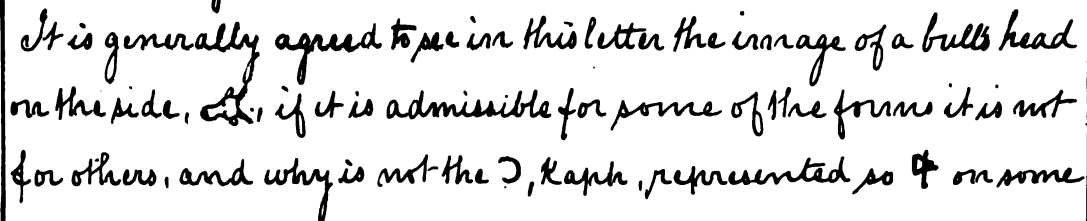 It is generally agreed to see in this letter the image of a bull's head
on the side, if it is admissible for some of the forms it is not
for others, and why is not the כ, Kaph, represented so on some